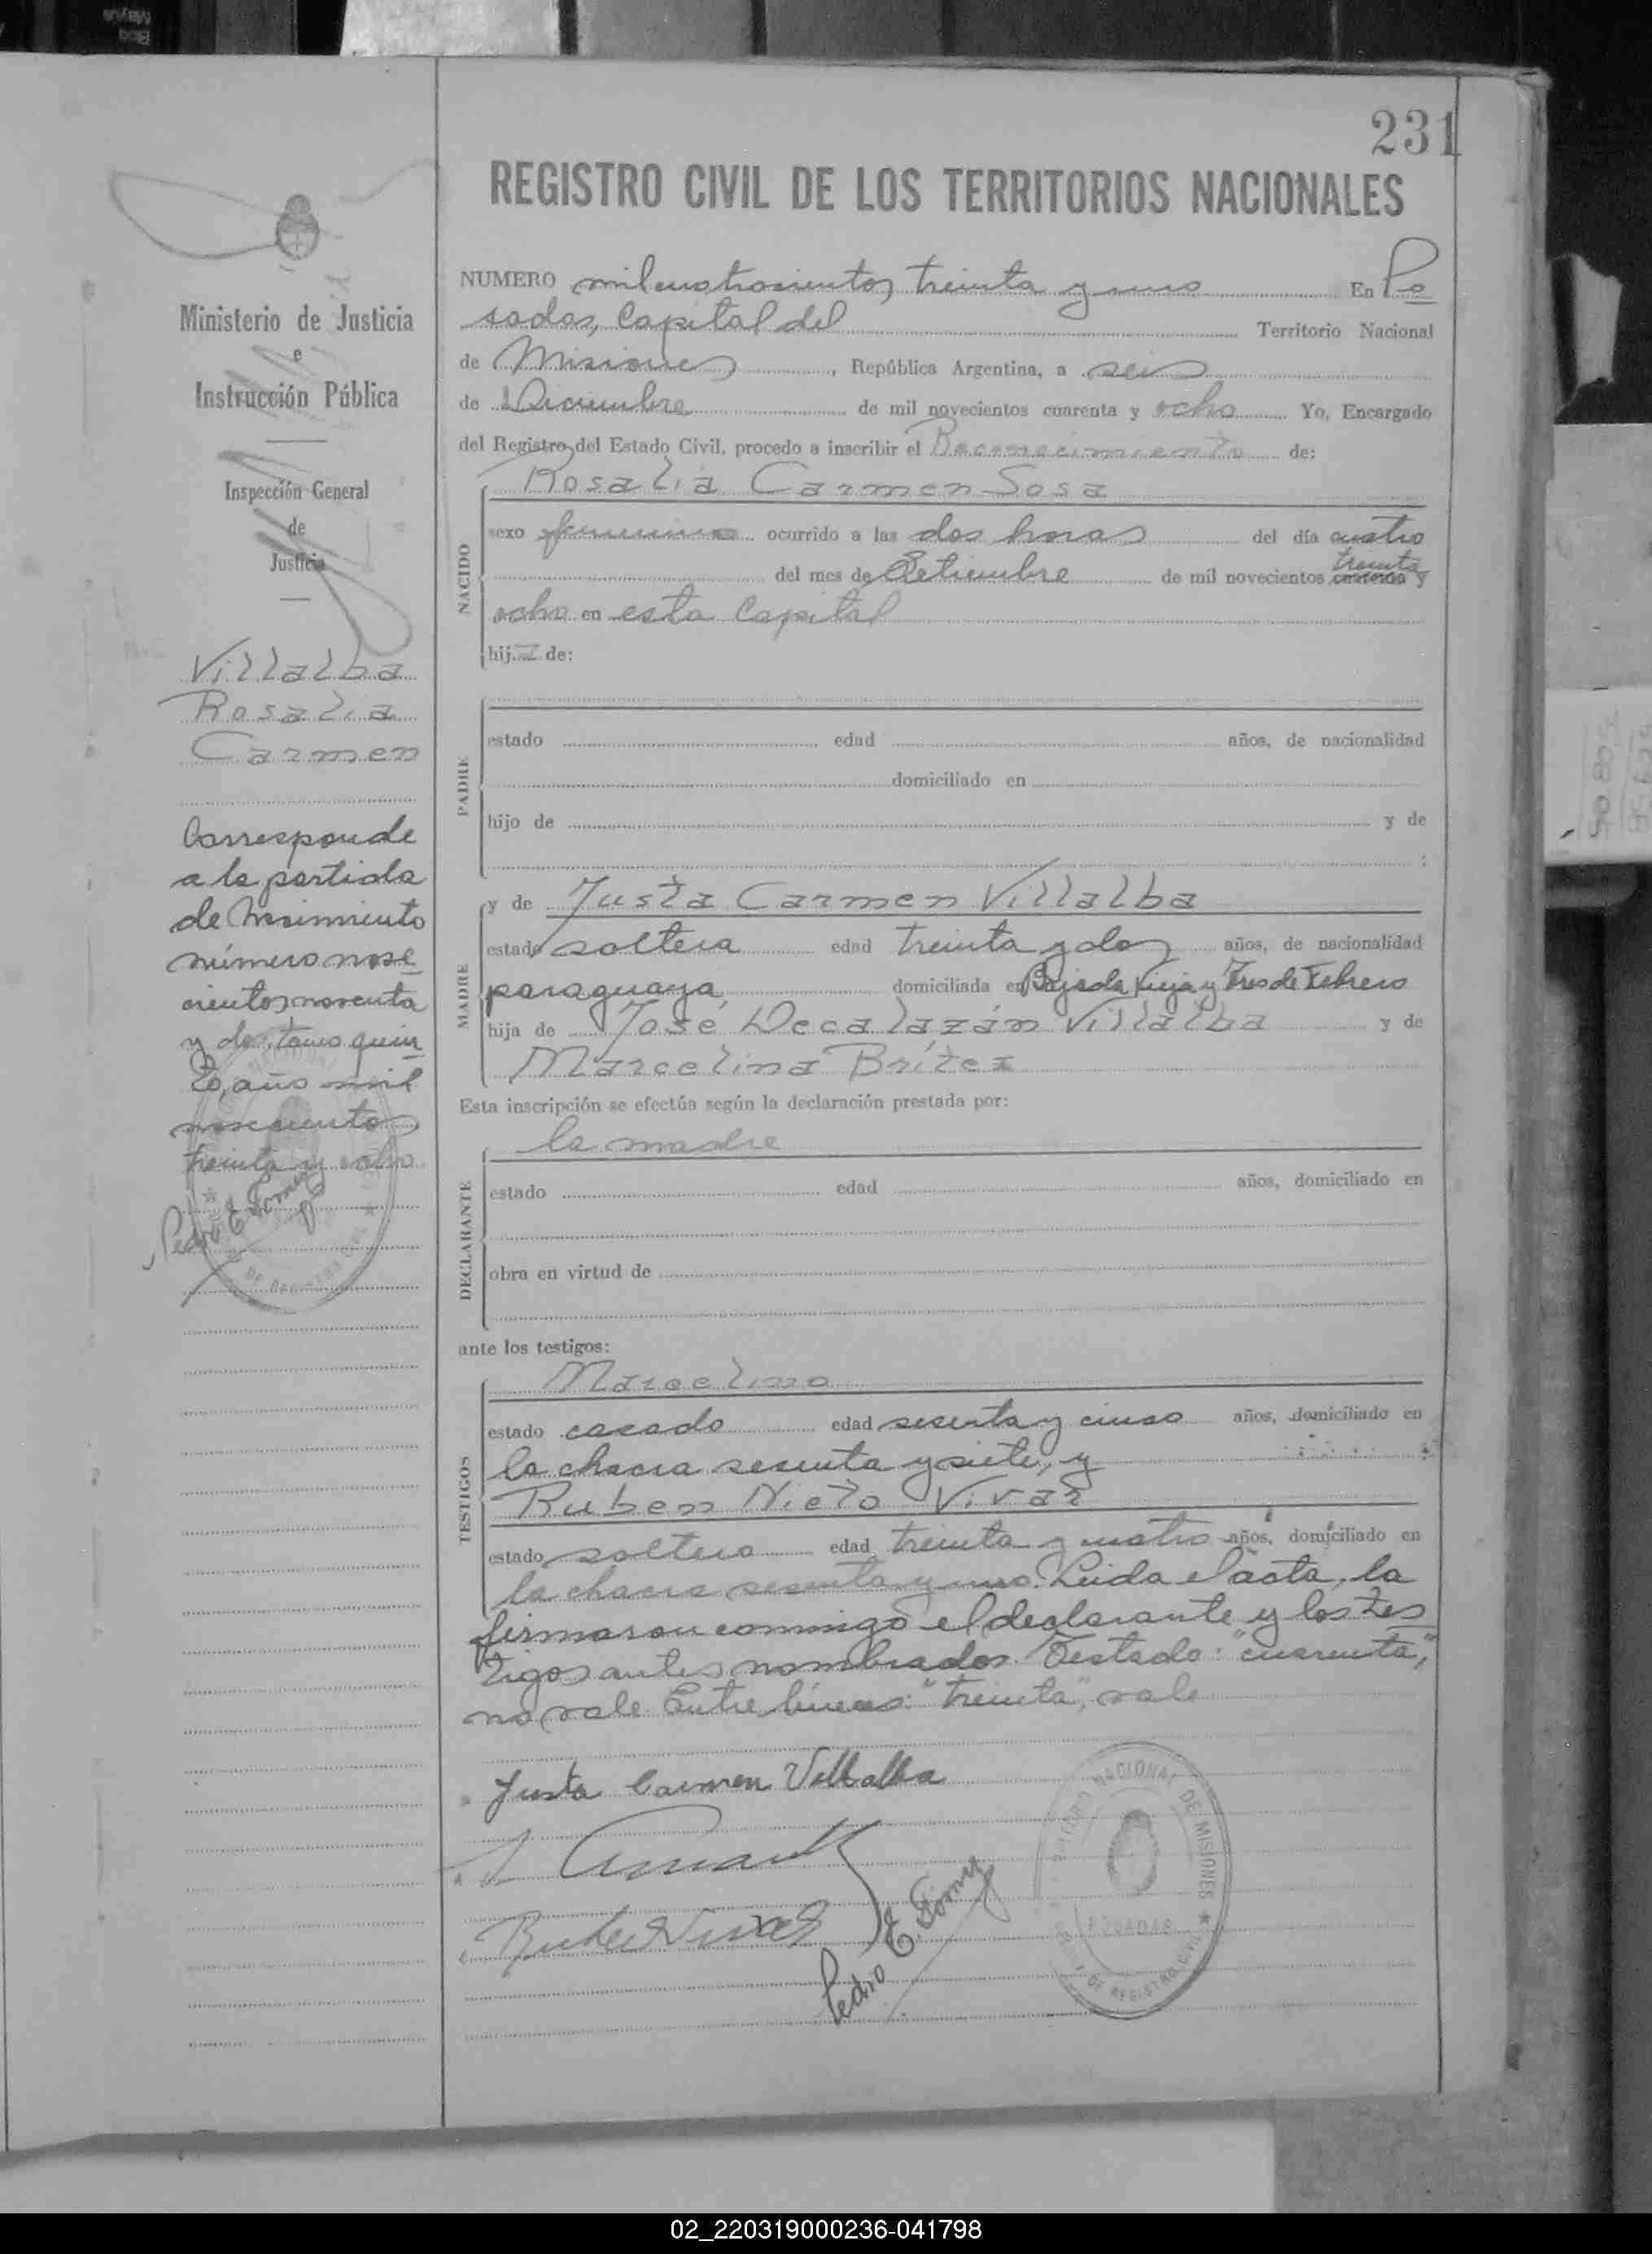 231
REGISTRO CIVIL DE LOS TERRITORIOS NACIONALES
NUMERO mil cuatrocientos treinta y uno En Po
sadas, Capital del Territorio Nacional
de Misiones, República Argentina, a seis
de Diciembre de mil novecientos cuarenta y ocho Yo, Encargado
del Registro del Estado Civil, procedo a inscribir el Reconocimiento de:
Rosalia Carmen Sosa
NACIDO
sexo femenino ocurrido a las dos horas del día cuatro
treinta
del mes de Setiembre de mil novecientos cuarenta y
ocho en esta Capital
hija de:
PADRE
estado edad años, de nacionalidad
domiciliado en
hijo de y de
:
y de Justa Carmen Villalba
MADRE
estado soltera edad treinta y dos años, de nacionalidad
paraguaya domiciliada en Bajada Vieja y Tres de Febrero
hija de José Decalazán Villalba y de
Marcelina Brítez
Esta inscripción se efectúa según la declaración prestada por:
la madre
DECLARANTE
estado edad años, domiciliado en
obra en virtud de
ante los testigos:
TESTIGOS
Marcelino
estado casado edad sesenta y cinco años, domiciliado en
la chacra sesenta y siete, y
Ruben Nieto Vivar
estado soltero edad treinta y cuatro años, domiciliado en
la chacra sesenta y uno. Leida el acta, la
firmaron conmigo el declarante y los tes
tigos antes nombrados. Testado: "cuarenta",
no vale. Entre líneas: "treinta", vale
Justa Carmen Villalba
Pedro E.
NACIONAL DE MISIONES
POSADAS
DE REGISTRO CIVIL
Ministerio de Justicia
e
Instrucción Pública
Inspección General
de
Justicia
Villalba
Rosalia
Carmen
Corresponde
a la partida
de Nacimiento
número nove
cientos noventa
y dos, tomo quin
to, año mil
novecientos
treinta y ocho
Pedro E.
DE REGISTRO CIVIL
02_220319000236-041798